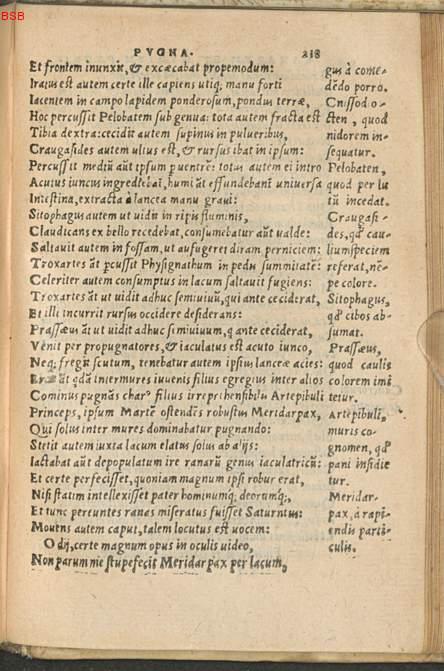 BSB
PVGNA. 238
Et frontem inunxit, & excæcabat propemodum:
Iratus est autem certe ille capiens utiq; manu forti
Iacentem in campo lapidem ponderosum, pondus terræ,
Hoc percussit Pelobatem sub genua: tota autem fracta est
Tibia dextra: cecidit autem supinus in pulueribus,
Craugasides autem ultus est, & rursus ibat in ipsum:
Percussit mediũ aũt ipsum p uentrẽ: totus autem ei intro
Acutus iuncus ingrediebat̃, humi aũt effundebant̃ uniuersa
Intestina, extracta à lancea manu graui:
Sitophagus autem ut uidit in ripis fluminis,
Claudicans ex bello recedebat, consumebatur aũt ualde:
Saltauit autem in fossam, ut aufugeret diram perniciem:
Troxartes aũt pcussit Physignathum in pedis summitatẽ:
Celeriter autem consumptus in lacum saltauit fugiens:
Troxartes aũt ut uidit adhuc semiuiuũ, qui ante ceciderat,
Et illi incurrit rursus occidere desiderans:
Prassæus aũt ut uidit adhuc semiuiuum, q ante ceciderat,
Vẽnit per propugnatores, & iaculatus est acuto iunco,
Neq; fregit scutum, tenebatur autem ipsius lanceæ acies:
Erat aũt qdã inter mures iuuenis filius egregius inter alios
Cominus pugnãs char⁹ filius irreprehensibilis Artepibuli
Princeps, ipsum Martẽ ostendẽs robustus Meridarpax,
Qui solus inter mures dominabatur pugnando:
Stetit autem iuxta lacum elatus solus ab alijs:
Iactabat aũt depopulatum ire ranarũ genus iaculatricũ:
Et certe perfecisset, quoniam magnum ipsi robur erat,
Nisi statim intellexisset pater hominumq; deorumq;,
Et tunc pereuntes ranas miseratus fuisset Saturnius:
Mouens autem caput, talem locutus est uocem:
O dij, certe magnum opus in oculis uideo,
Non parum me stupefecit Meridarpax per lacum,
gus à come-
dẽdo porro.
Cnissodio-
cten, quod
nidorem in-
sequatur.
Pelobaten,
quod per lu
tũ incedat.
Craugasi-
des, qd' cau-
lium speciem
referat, nẽ-
pe colore.
Sitophagus,
qd' cibos ab-
sumat.
Prassæus,
quod caulis
colorem imi
tetur.
Artepibuli,
muris co-
gnomen, qd'
pani insidie
tur.
Meridar-
pax, à rapi-
endis parti-
culis.